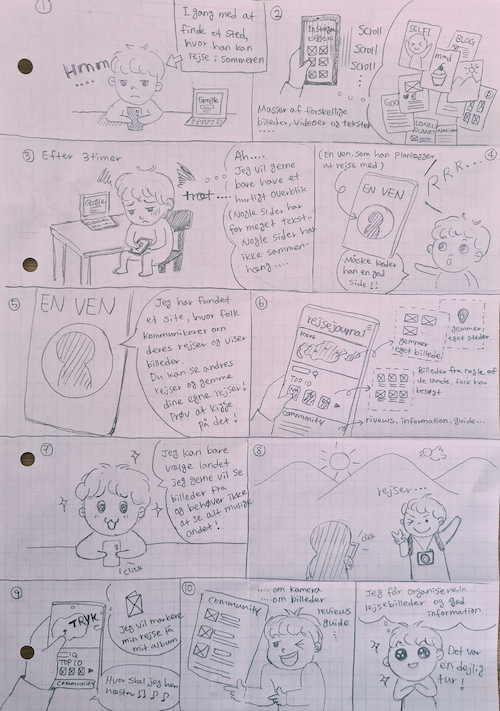 ①
I gang med at
finde et sted,
hvor han kan
rejse i sommeren
Hmm
....
Google
②
Instagram
Scroll
Scroll
Scroll
SELFI
BLOG
mad
LONELY
PLANET
Masser af forskellige
billeder, videoer og tekster
....
③ Efter 3 timer
Google
træt....
Ah....
Jeg vil gerne
bare have et
hurtigt overblik
(Nogle sider har
for meget tekst..
Nogle sider har
ikke sammen-
hæng....
④
(En ven, som han planlægger
at rejse med)
EN VEN
RRR...
Måske kender
han en god
side!!
⑤
EN VEN
Jeg har fundet
et site, hvor folk
kommunikerer om
deres rejser og viser
billeder.
Du kan se andres
rejser og gemme
dine egne rejser!
Prøv at kigge
på det!
⑥
rejsejournal
TOP 10
Community
gemmer
eget billede
gemmer
eget steder
Billeder fra nogle af
de lande, folk har
besøgt
rivews, information, guide...
⑦
Jeg kan bare
vælge landet
Jeg gerne vil se
billeder fra
og behøver ikke
at se alt muligt
andet!
click
⑧
rejser...
click
⑨
TRYK
TOP 10
Community
Jeg vil markere
min rejse på
mit album
Hvor skal jeg hen
næste ♫ ♪ ♪
⑩
Community
.... om kamera
.... om billeder
reviews
guide
Jeg får organiserede
rejsebilleder og god
information
Det var
en dejlig
tur!